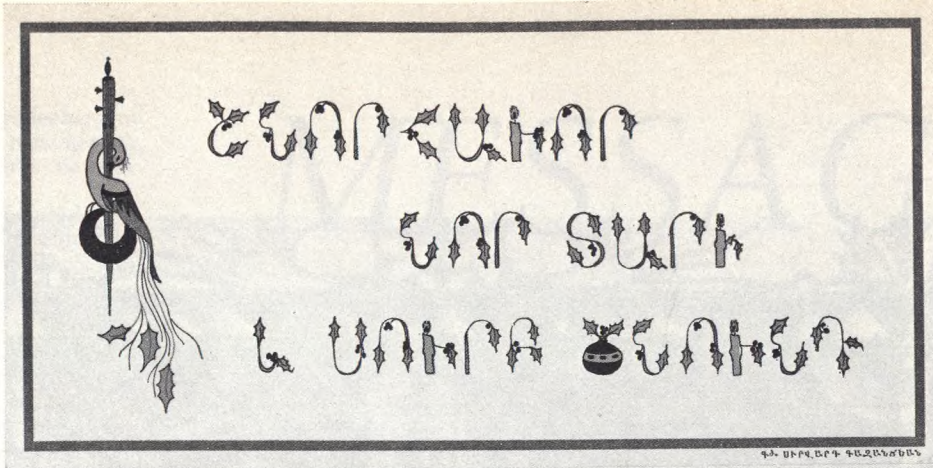 ՇՆՈՐՀԱՒՈՐ
ՆՈՐ ՏԱՐԻ
և ՍՈՒՐԲ ԾՆՈՒՆԴ
ԳԾ. ՍԻՐՎԱՐԴ ԳԱԶԱՆՃԵԱՆ